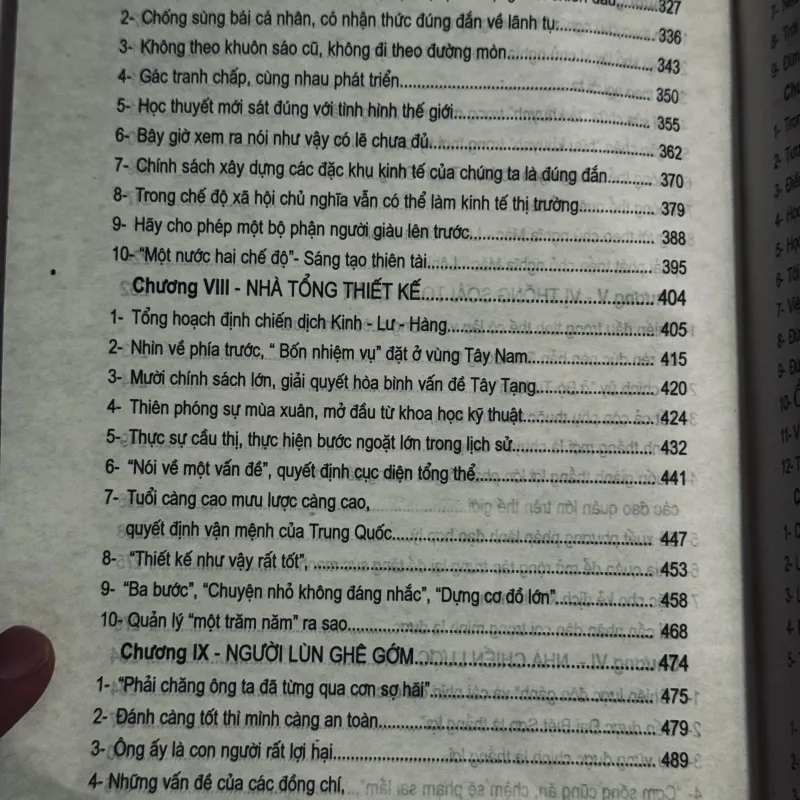 327
2- Chống sùng bái cá nhân, có nhận thức đúng đắn về lãnh tụ. 336
3- Không theo khuôn sáo cũ, không đi theo đường mòn. 343
4- Gác tranh chấp, cùng nhau phát triển. 350
5- Học thuyết mới sát đúng với tình hình thế giới. 355
6- Bây giờ xem ra nói như vậy có lẽ chưa đủ. 362
7- Chính sách xây dựng các đặc khu kinh tế của chúng ta là đúng đắn. 370
8- Trong chế độ xã hội chủ nghĩa vẫn có thể làm kinh tế thị trường. 379
9- Hãy cho phép một bộ phận người giàu lên trước. 388
10- “Một nước hai chế độ”- Sáng tạo thiên tài. 395
Chương VIII - NHÀ TỔNG THIẾT KẾ. 404
1- Tổng hoạch định chiến dịch Kinh - Lư - Hàng. 405
2- Nhìn về phía trước, “ Bốn nhiệm vụ” đặt ở vùng Tây Nam. 415
3- Mười chính sách lớn, giải quyết hòa bình vấn đề Tây Tạng. 420
4- Thiên phóng sự mùa xuân, mở đầu từ khoa học kỹ thuật. 424
5- Thực sự cầu thị, thực hiện bước ngoặt lớn trong lịch sử. 432
6- “Nói về một vấn đề”, quyết định cục diện tổng thể. 441
7- Tuổi càng cao mưu lược càng cao,
quyết định vận mệnh của Trung Quốc. 447
8- “Thiết kế như vậy rất tốt”, 453
9- “Ba bước”, “Chuyện nhỏ không đáng nhắc”, “Dựng cơ đồ lớn”. 458
10- Quản lý “một trăm năm” ra sao. 468
Chương IX - NGƯỜI LÙN GHÊ GỚM. 474
1- “Phải chăng ông ta đã từng qua cơn sợ hãi” 475
2- Đánh càng tốt thì mình càng an toàn. 479
3- Ông ấy là con người rất lợi hại. 489
4- Những vấn đề của các đồng chí,